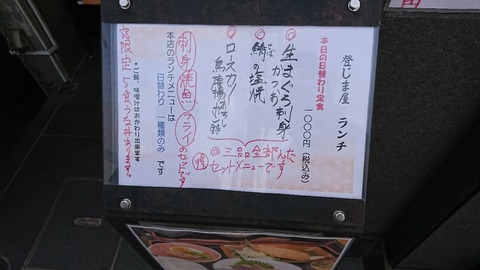 登じま屋 ランチ
本日の日替わり定食
一〇〇〇円(税込み)
生まぐろ刺身
かつお
鯖の塩焼
さば
ロースカツ
鳥唐揚
三品全部入った
セットメニューです
本店のランチメニューは
日替わり 一種類のみ です
刺身 焼魚 フライのセットです
*ご飯、味噌汁はおかわり出来ます